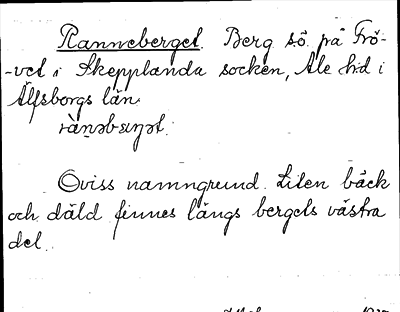 Ranneberget. Berg sö. på Frö-
-vet i Skepplanda socken, Ale hd i
Älfsborgs län.
Oviss namngrund. Liten bäck
och däld finnes längs bergets västra
del.